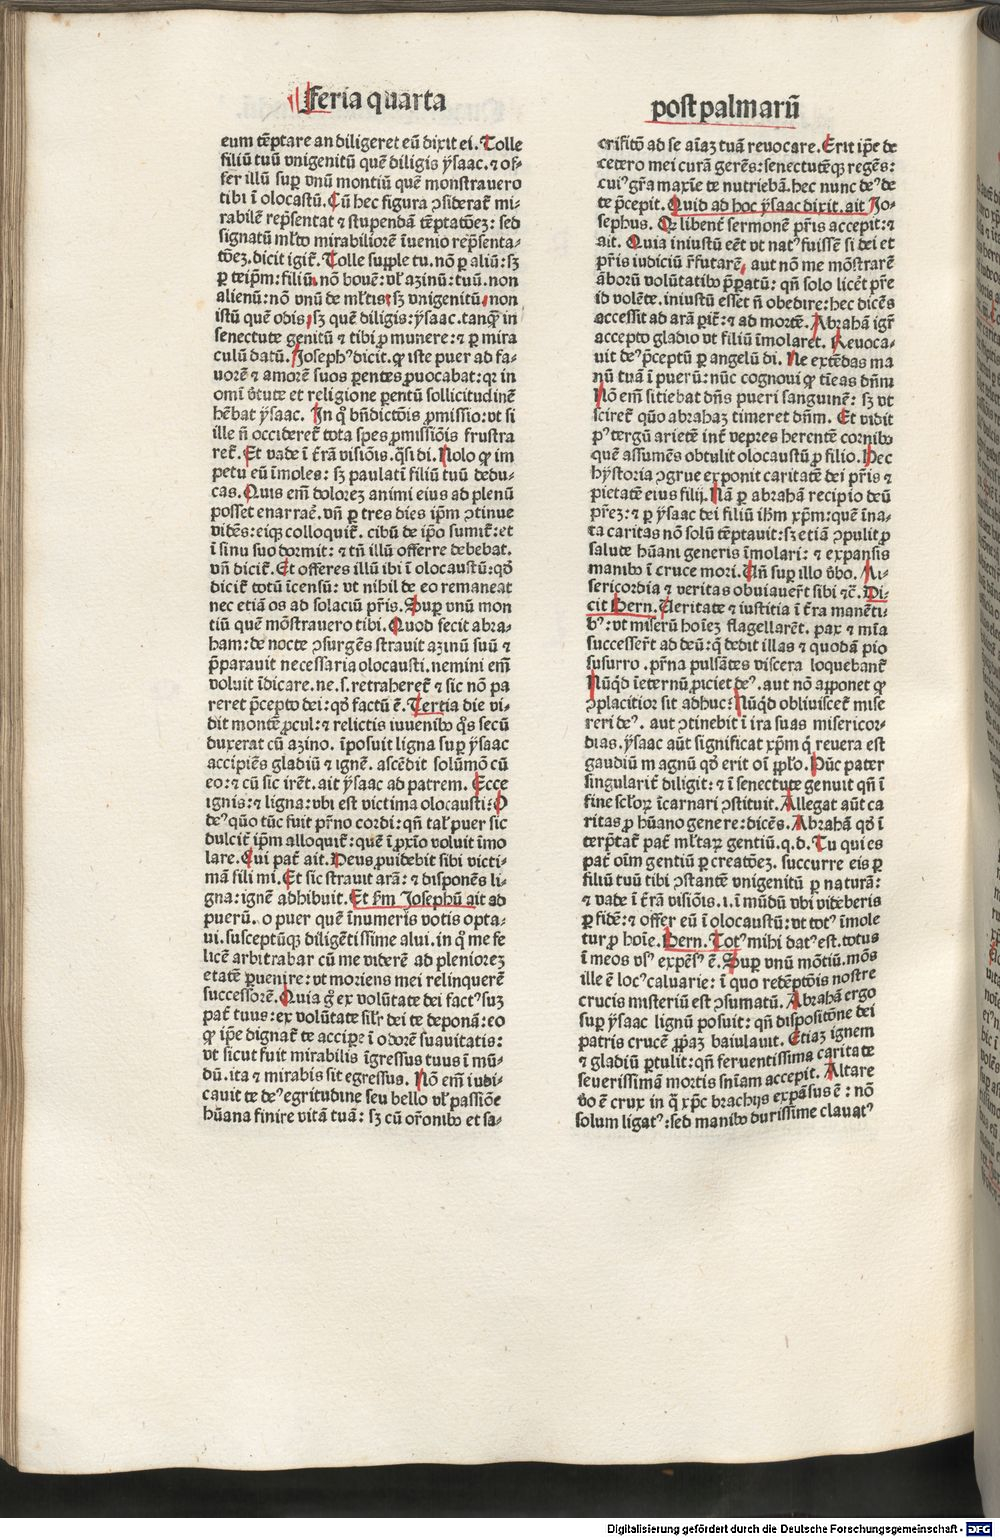 feria quarta
eum tẽptare an diligeret eũ dixit ei. Tolle
filiũ tuũ vnigenitũ quẽ diligis ysaac. ⁊ of-
fer illũ suꝑ vnũ montiũ quẽ monstrauero
tibi ĩ olocastũ. Cũ hec figura ↄsiderat᷑ mi-
rabilẽ rep̃sentat ⁊ stupendã tẽptatõez: sed
signatũ ml̃to mirabiliorẽ ĩuenio rep̃senta-
tõez. dicit igit᷑. Tolle supple tu. nõ ꝑ aliũ: sꝫ
ꝑ teip̃m: filiũ, nõ bouẽ: vl̃ azinũ: tuũ. non
alienũ: nõ vnũ de ml̃tis, sꝫ vnigenitũ, non
istũ quẽ odis, sꝫ quẽ diligis: ysaac. tanqꝫ in
senectute genitũ ⁊ tibi ꝓ munere: ⁊ ꝑ mira
culũ datũ. Josephꝰ dicit. ꝙ iste puer ad fa-
uorẽ ⁊ amorẽ suos ꝑentes ꝓuocabat: qꝛ in
omĩ v̾tute et religione ꝑentũ sollicitudinẽ
hẽbat ysaac. In qͦ bñdictõis ꝓmissio: vt si
ille ñ occideret᷑ tota spes ꝓmissiõis frustra
ret᷑. Et vade ĩ t̾rã visiõis. q̃si di. Nolo ꝙ im
petu eũ ĩmoles: sꝫ paulati filiũ tuũ dedu-
cas. Quis em̃ dolorez animi eius ad plenũ
posset enarrare. vñ ꝑ tres dies ip̃m ↄtinue
vidẽs: eiqꝫ colloquit᷑. cibũ de ip̃o sumit᷑: et
ĩ sinu suo dormit: ⁊ tñ illũ offerre debebat.
vñ dicit᷑. Et offeres illũ ibi ĩ olocaustũ: qð
dicit᷑ totũ ĩcensũ: vt nihil de eo remaneat
nec etiã os ad solaciũ pr̃is. Suꝑ vnũ mon
tiũ quẽ mõstrauero tibi. Quod fecit abra-
ham: de nocte ↄsurgẽs strauit azinũ suũ ⁊
p̃parauit necessaria olocausti. nemini em̃
voluit ĩdicare. ne. s. retraheret᷑ ⁊ sic nõ pa
reret p̃cepto dei: qð factũ ẽ. Tertia die vi-
dit montẽ ꝓcul: ⁊ relictis iuuenibꝰ q̃s secũ
duxerat cũ azino. ĩposuit ligna suꝑ ysaac
accipiẽs gladiũ ⁊ ignẽ. ascẽdit solũmõ cũ
eo: ⁊ cũ sic irẽt. ait ysaac ad patrem. Ecce
ignis: ⁊ ligna: vbi est victima olocausti: O
deꝰ quõ tũc fuit pr̃no cordi: qñ tal̃ puer sic
dulcit̾ ip̃m alloquit᷑: quẽ ĩ ꝓxĩo voluit ĩmo
lare. Cui pat̾ ait. Deus ꝓuidebit sibi victi-
mã fili mi. Et sic strauit arã: ⁊ disponẽs li-
gna: ignẽ adhibuit. Et s̃m Josephũ ait ad
puerũ. o puer quẽ ĩnumeris votis opta-
ui. susceptũqꝫ diligẽtissime alui. in qͦ me fe
licẽ arbitrabar cũ me viderẽ ad pleniorez
etatẽ ꝑuenire: vt moriens mei relinquerẽ
successorẽ. Quia gͦ ex volũtate dei factꝰ suꝫ
pat̾ tuus: ex volũtate silr̃ dei te deponã: eo
ꝙ ip̃e dignat᷑ te accipe ĩ odorẽ suauitatis:
vt sicut fuit mirabilis ĩgressus tuus ĩ mũ-
dũ. ita ⁊ mirabis sit egressus. Nõ em̃ iudi-
cauit te deꝰ egritudine seu bello vl̃ passiõe
hũana finire vitã tuã: sꝫ cũ or̃onibꝰ et sa-
post palmarũ
crificõ ad se aĩaz tuã reuocare. Erit ip̃e de
cetero mei curã gerẽs: senectutẽqꝫ regẽs:
cuiꝰ gr̃a maxĩe te nutriebã. hec nunc deꝰ de
te p̃cepit. Quid ad hoc ysaac dixit. ait Jo-
sephus. Qꝛ libent̾ sermonẽ pr̃is accepit: ⁊
ait. Quia iniustũ eẽt vt natꝰ fuissẽ si dei et
pr̃is iudiciũ r̃futarẽ, aut nõ me mõstrarẽ
ãborũ volũtatibꝰ p̃patũ: qñ solo licẽt pr̃e
id volẽte. iniustũ esset ñ obedire: hec dicẽs
accessit ad arã pit᷑: ⁊ ad mortẽ. Abrahã igr̃
accepto gladio vt filiũ ĩmolaret. Reuoca-
uit deꝰ p̃ceptũ ꝑ angelũ di. Ne extẽdas ma
nũ tuã ĩ puerũ: nũc cognoui ꝙ tĩeas dñm
Nõ em̃ sitiebat dñs pueri sanguinẽ: sꝫ vt
sciret᷑ quõ abrahaz timeret dñm. Et vidit
pꝰ tergũ arietẽ int̾ vepres herentẽ cornibꝰ
quẽ assumẽs obtulit olocaustũ ꝓ filio. Hec
hystoria ↄgrue exponit caritatẽ dei pr̃is ⁊
pietatẽ eius filij. Nã ꝑ abrahã recipio deũ
pr̃ez: ⁊ ꝑ ysaac dei filiũ ih̃m xp̃m: quẽ ĩna-
ta caritas nõ solũ tẽptauit: sꝫ etiã ↄpulit ꝓ
salute hũani generis ĩmolari: ⁊ expansis
manibꝰ ĩ cruce mori. Un̄ suꝑ illo v̾bo. Mi-
sericordia ⁊ veritas obuiauer̃t sibi ⁊c̃. Di-
cit Bern. Ueritate ⁊ iustitia ĩ t̾ra manẽti-
bꝰ: vt miserũ hoĩez flagellarẽt. pax ⁊ mĩa
successer̃t ad deũ: q̃ dedit illas ⁊ quodã pio
susurro. pr̃na pulsãtes viscera loquebant᷑
Nũqͥd ĩeternũ ꝓiciet deꝰ. aut nõ apponet ꝙ
ↄplacitior sit adhuc: Nũqͥd obliuiscet᷑ mise
reri deꝰ. aut ↄtinebit ĩ ira suas misericor-
dias. ysaac aũt significat xp̃m qͥ reuera est
gaudiũ magnũ qð erit oĩ pplo. Hũc pater
singularit̾ diligit: ⁊ ĩ senectute genuit qñ ĩ
fine sclor̃ ĩcarnari ↄstituit. Allegat aũt ca
ritas ꝓ hũano genere: dicẽs. Abrahã qð ĩ
terp̃tat᷑ pat̾ ml̃taꝝ gentiũ. q. d. Tu qui es
pat̾ oĩm gentiũ ꝑ creatõez. succurre eis ꝑ
filiũ tuũ tibi ↄstantẽ vnigenitũ ꝑ naturã:
⁊ vade ĩ t̾rã visiõis. i. ĩ mũdũ vbi videberis
ꝑ fidẽ: ⁊ offer eũ ĩ olocaustũ: vt totꝰ ĩmole
tur ꝓ hoĩe. Bern. Totꝰ mihi datꝰ est. totus
ĩ meos vsꝰ expẽsꝰ ẽ. Suꝑ vnũ mõtiũ. mõs
ille ẽ locꝰ caluarie: ĩ quo redẽptõis nostre
crucis misteriũ est ↄsumatũ. Abrahã ergo
suꝑ ysaac lignũ posuit: qñ dispositõne dei
patris crucẽ ꝓpaz baiulauit. Etiaz ignem
⁊ gladiũ ꝑtulit: qñ feruentissima caritate
seuerissimã mortis sñiam accepit. Altare
v̾o ẽ crux in q̃ xp̃c brachijs expãsus ẽ: nõ
solum ligatꝰ: sed manibꝰ durissime clauatꝰ
Digitalisierung gefördert durch die Deutsche Forschungsgemeinschaft - DFG